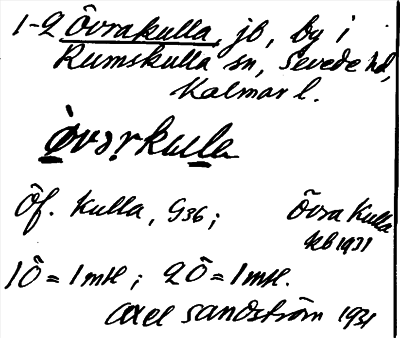 1-2 Övrakulla, jb, by i
Rumskulla sn, Sevede hd,
Kalmar l.
òvərkulla
Öf. Kulla, G36; Övra Kulla
kb 1931
1Ö = 1 mtl; 2Ö = 1 mtl.
Axel Sandström 1931